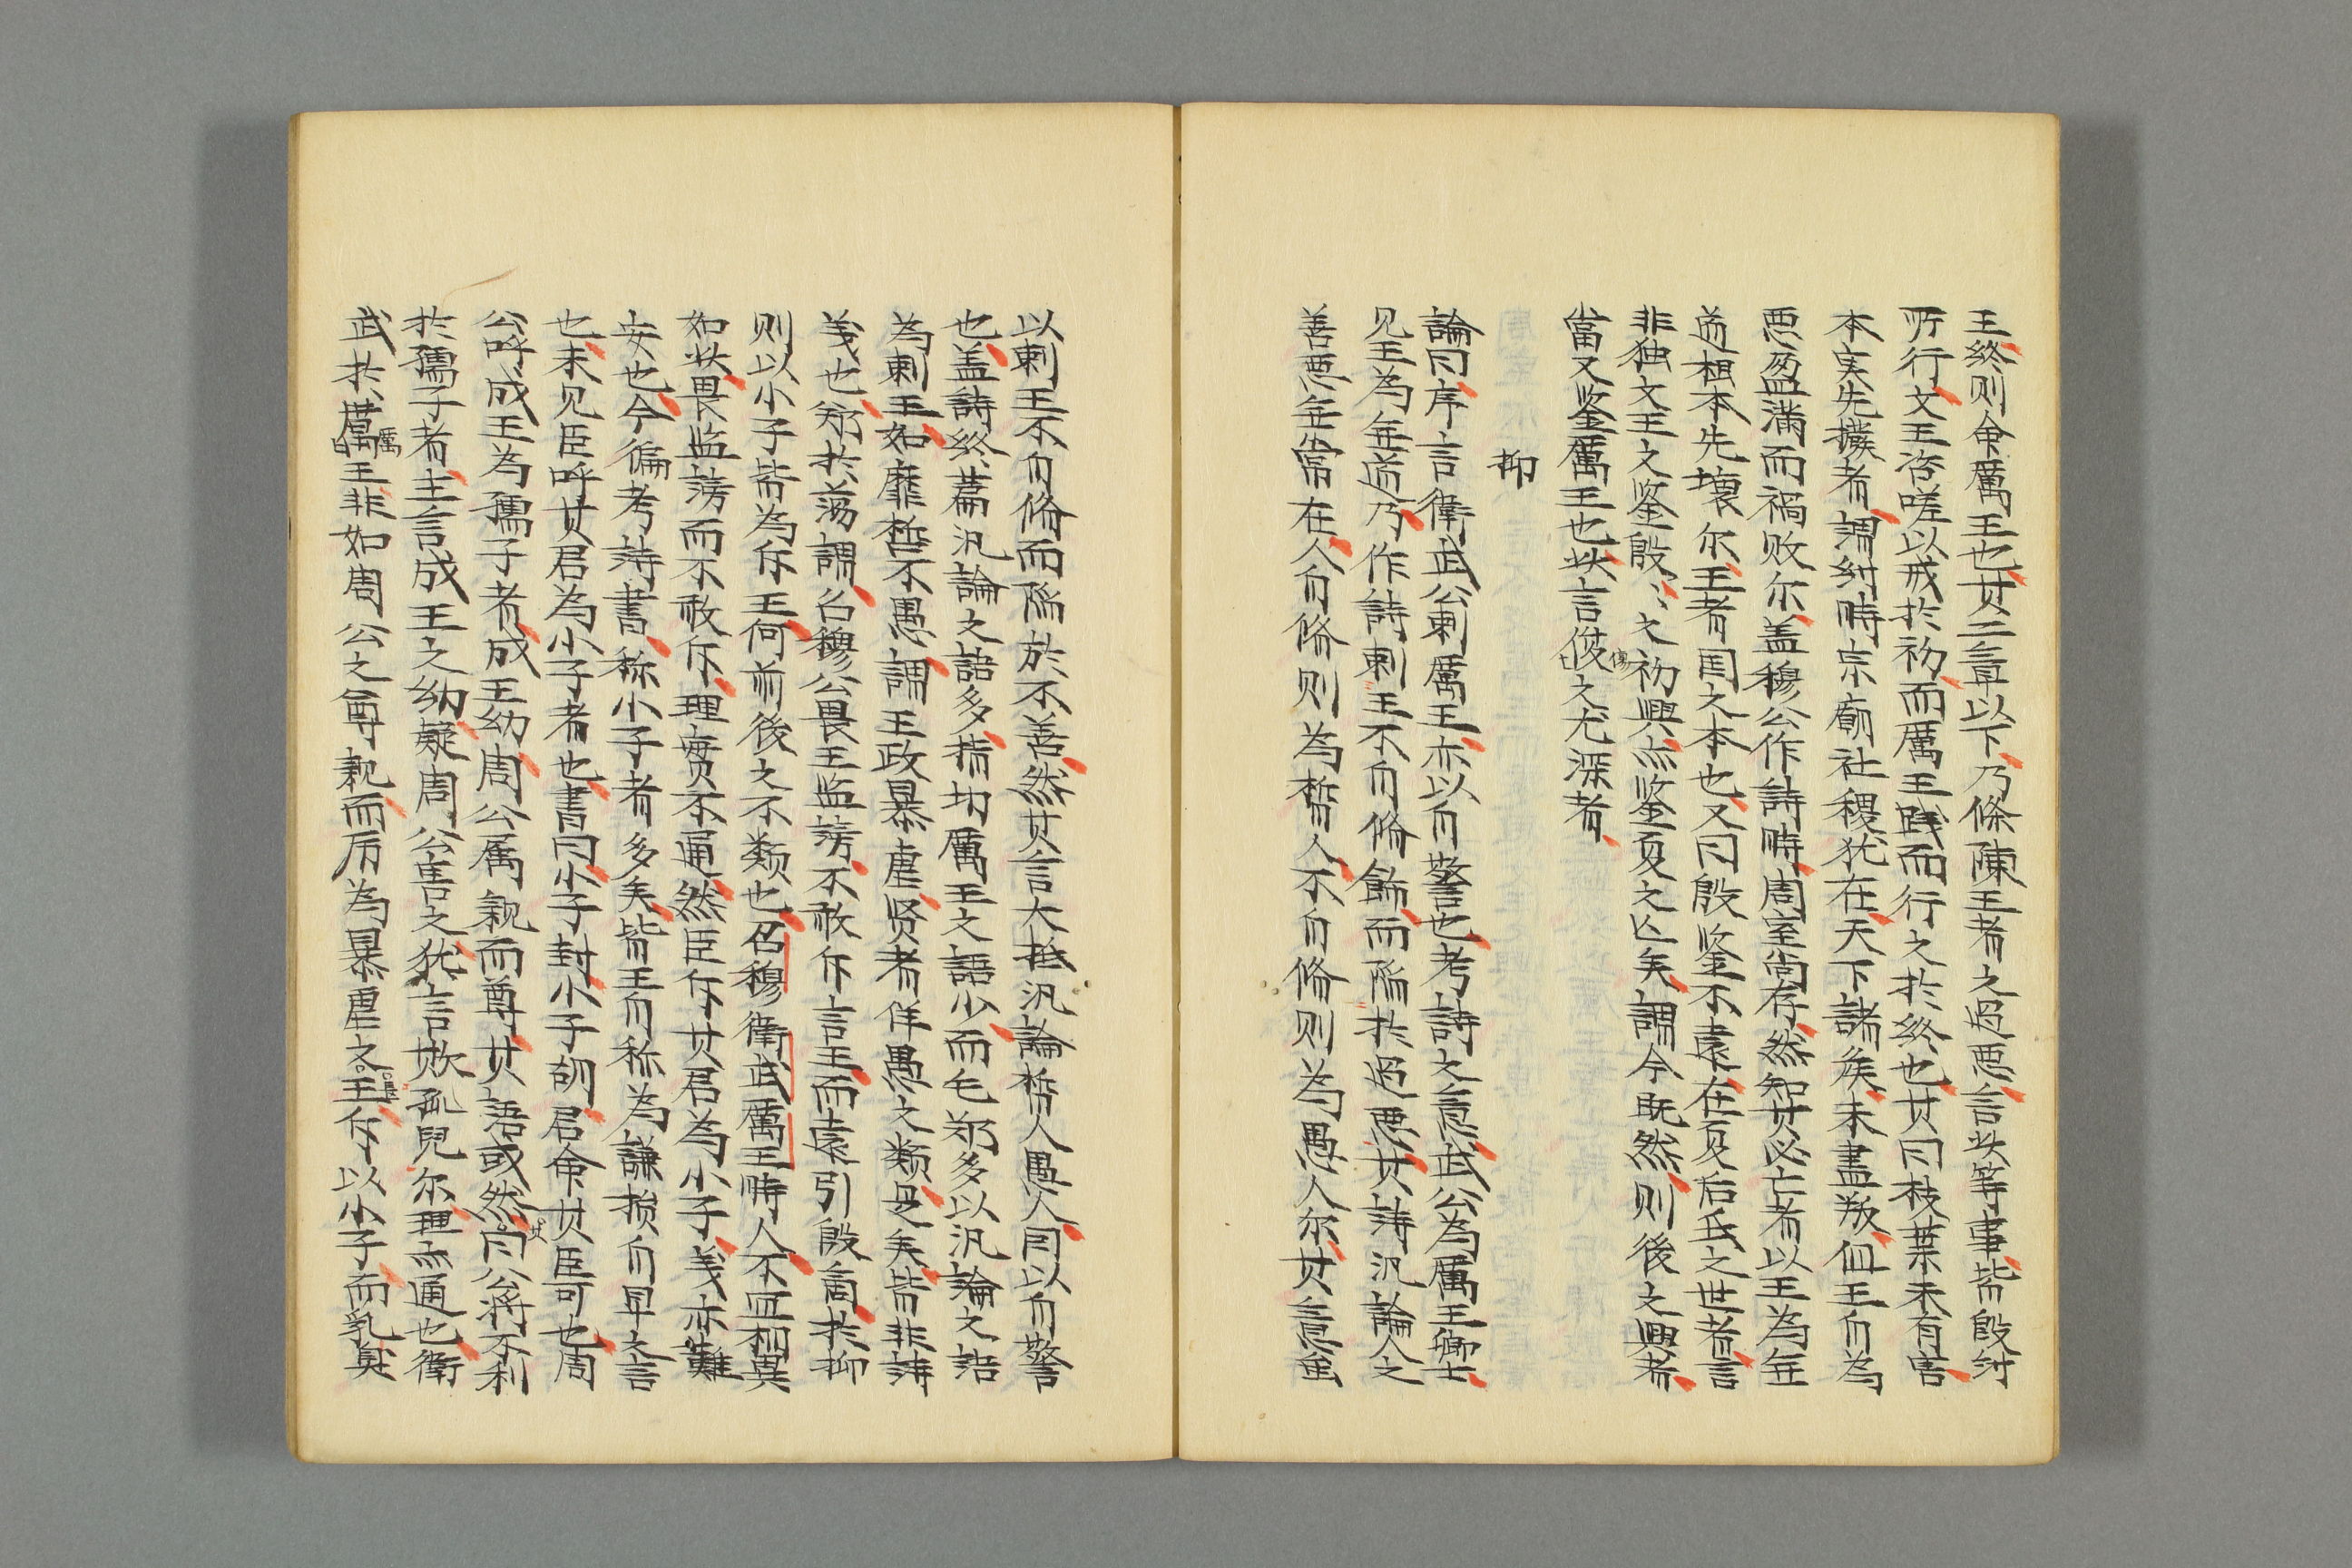 王終则命厲王也其二章以下乃條陳王者之過悪言此等事皆殷紂
所行文王咨嗟以戒於初而厲王踐而行之於終也其曰枝葉未有害
本実先撥者謂紂時宗廟社稷犹在天下諸矦未盡叛但王自為
悪盈満而禍败尔盖穆公作詩時周室尚存然知其必亡者以王為無
道根本先壊尔王者囯之本也又曰殷鉴不遠在夏后氏之世者言
非独文王之鉴殷〻之初興亦鉴夏之亡矣謂今既然则後之興者
當又鉴厲王也此言傷之尤深者
抑
論曰序言衛武公刺厲王亦以自警也考詩之意武公為厲王卿士
见王為無道乃作詩刺王不自脩飭而陷於過悪其詩汎論人之
善悪無常在人自脩则為哲人不自脩则為愚人尔其意虽
以刺王不自脩而陷於不善然其言大抵汎論哲人愚人因以自警
也盖詩終篇汎論之語多指切厲王之語少而毛郑多以汎論之語
為刺王如靡哲不愚謂王政暴虐贤者佯愚之类是矣皆非詩
義也郑於荡謂召穆公畏王监謗不敢斥言王而遠引殷商於抑
则以小子皆為斥王何前後之不类也召穆衛武厲王時人不宜相異
如此畏监謗而不敢斥理實不通然臣斥其君為小子義亦難
安也今徧考詩書称小子者多矣皆王自称為謙損自卑之言
也未见臣呼其君為小子者也書曰小子封小子胡君命其臣可也周
公呼成王為孺子者成王幼周公属親而尊其語或然曰公將不利
於孺子者主言成王之幼疑周公害之犹言欺孤兒尔理亦通也衛
武於厲王非如周公之尊親而厉為暴虐之王斥以小子而乳臭